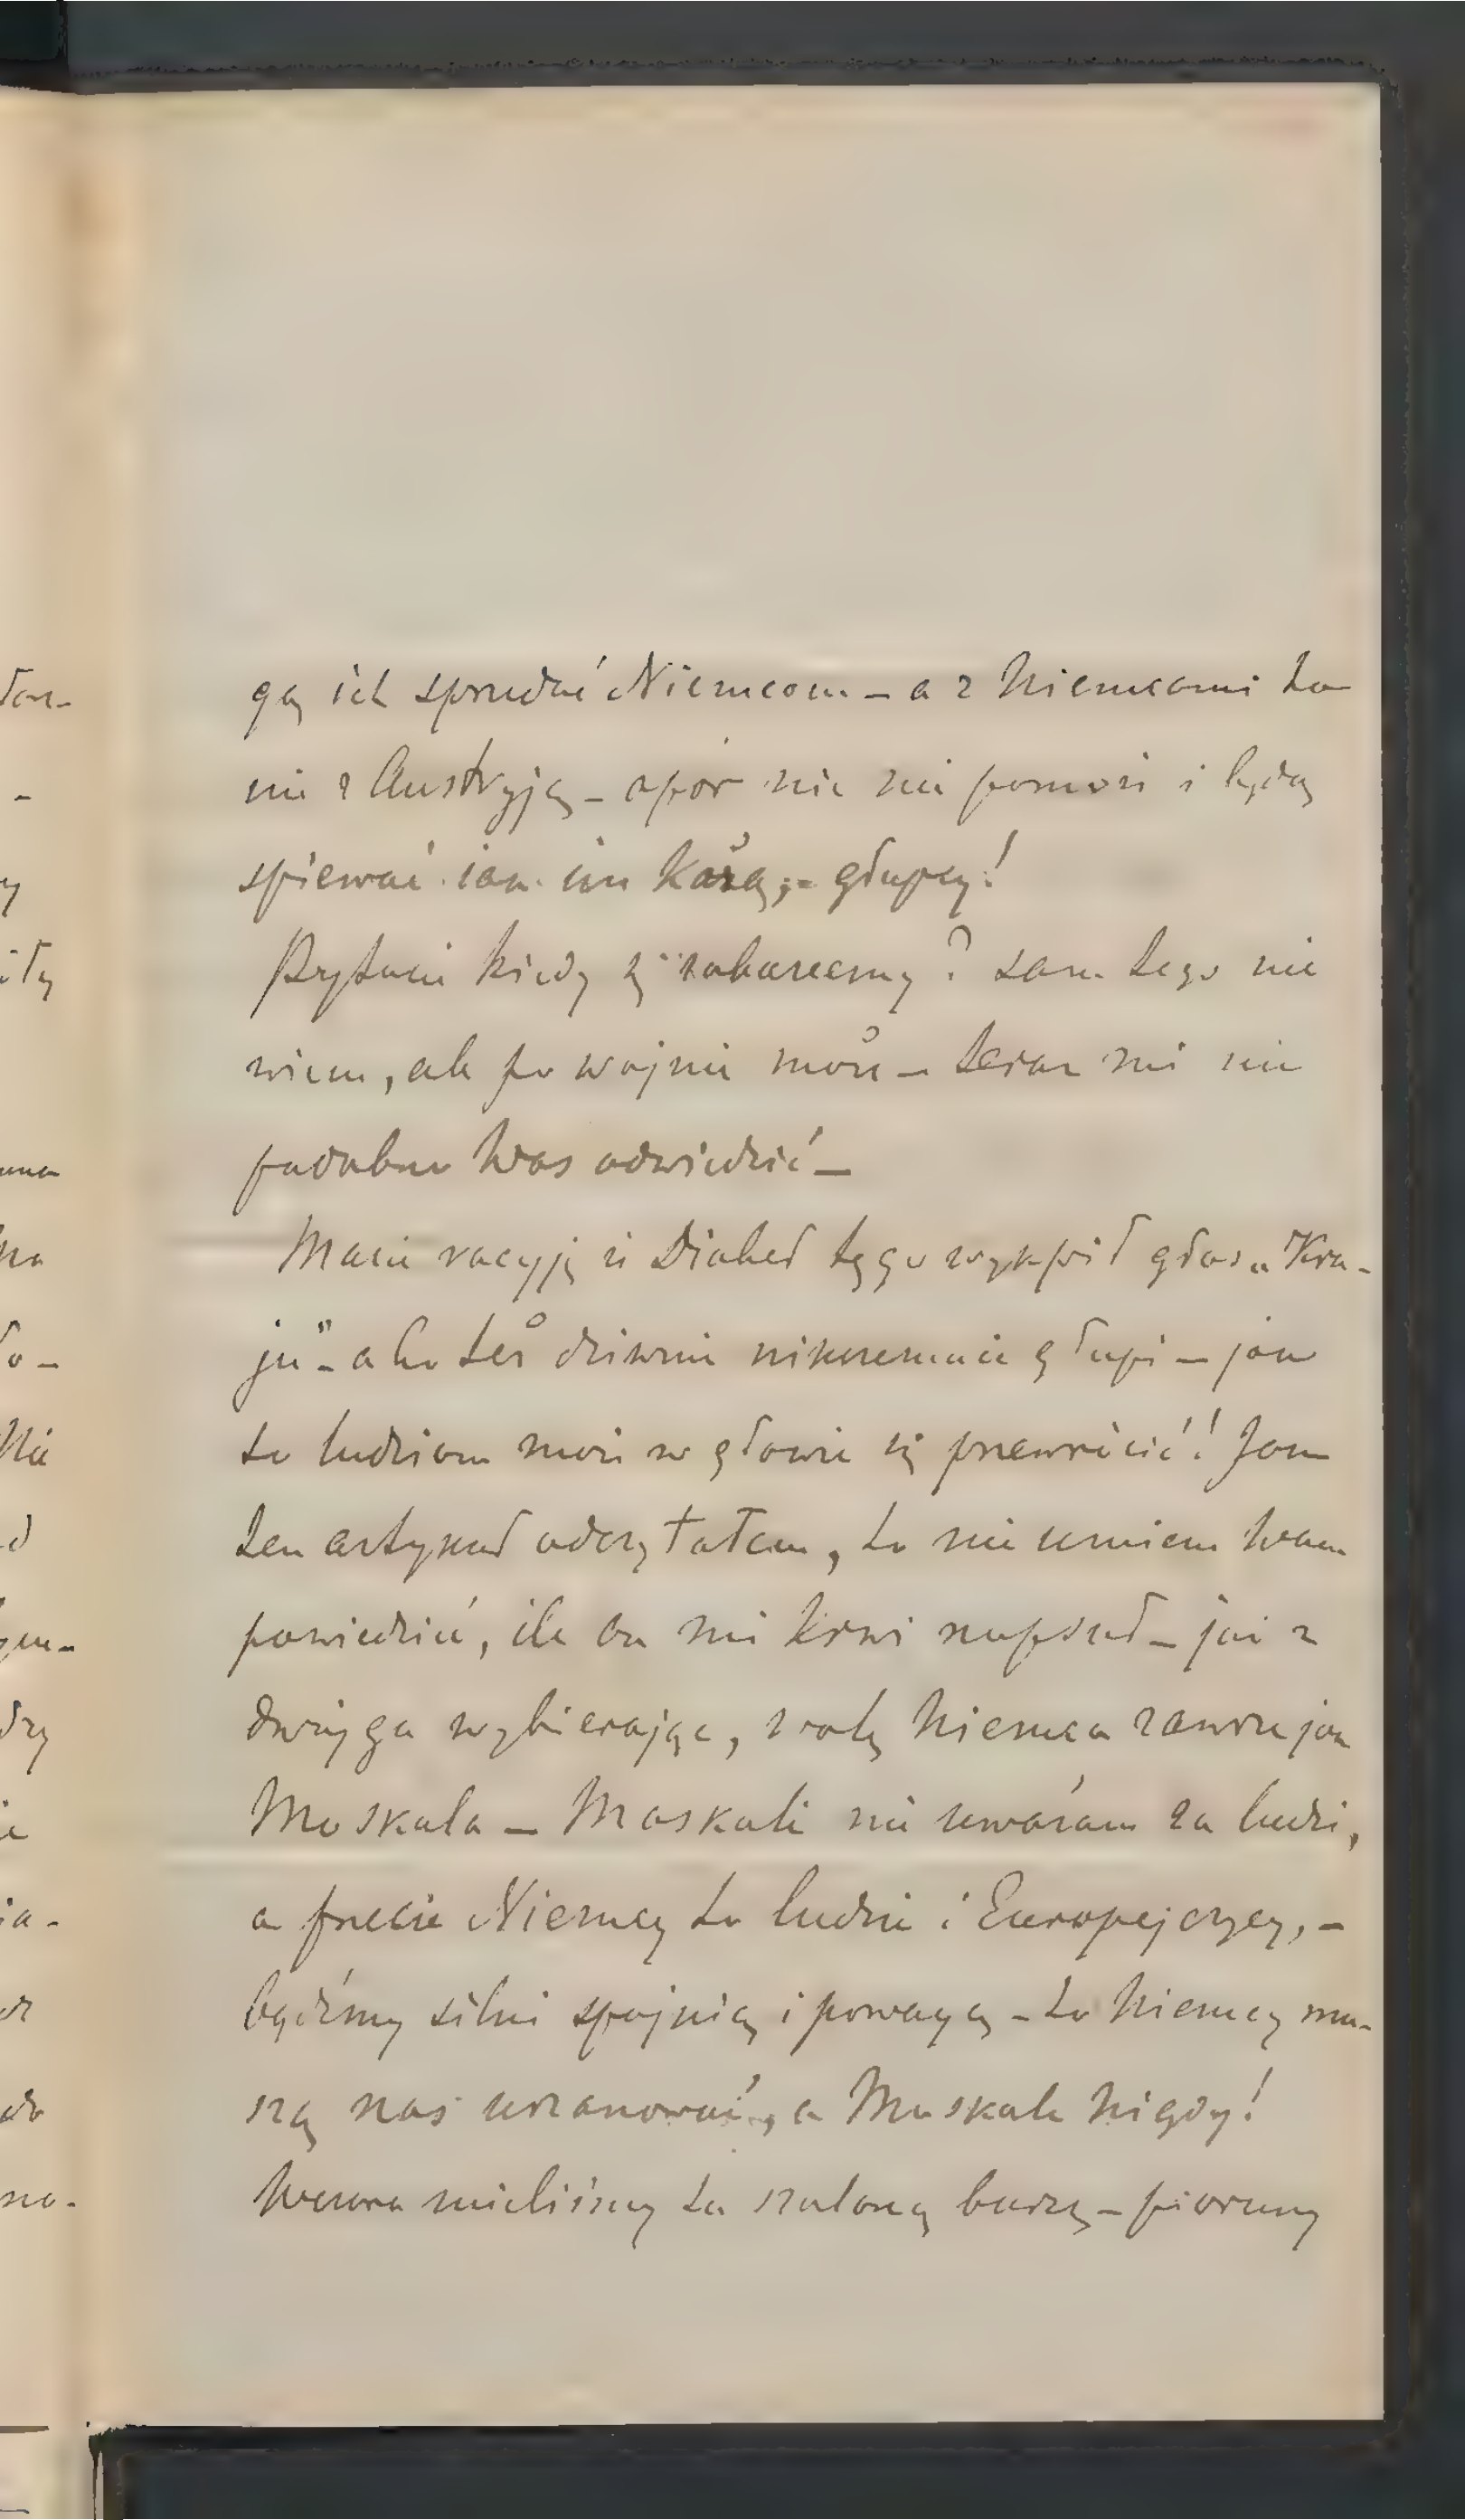 gą ich sprzedać Niemcom – a z Niemcami to
nie z Austryją – opór nic nie pomoże i będą
śpiewać jak im każą, – głupcy!
Pytacie kiedy się zobaczemy? sam tego nie
wiem, ale po wojnie może – teraz mi nie
podobna Was odwiedzić –
Macie racyję że Diabeł tęgo wykpił głos „Kra-
ju" – a bo też dziwnie nikczemnie głupi – jak
to ludziom może w głowie się przewrócić! Jam
ten artykuł odczytałem, to nie umiem Wam
powiedzieć, ile on mi krwi napsuł – ja z
dwojga wybierając, wolę Niemca zawsze jak
Moskala – Moskali nie uważam za ludzi,
a przecie Niemcy to ludzie i Europejczycy, –
bądźmy silni spójnią i powagą – to Niemcy mu-
szą nas uszanować, a Moskale Nigdy!
Wczora mieliśmy tu szaloną burzę – pioruny